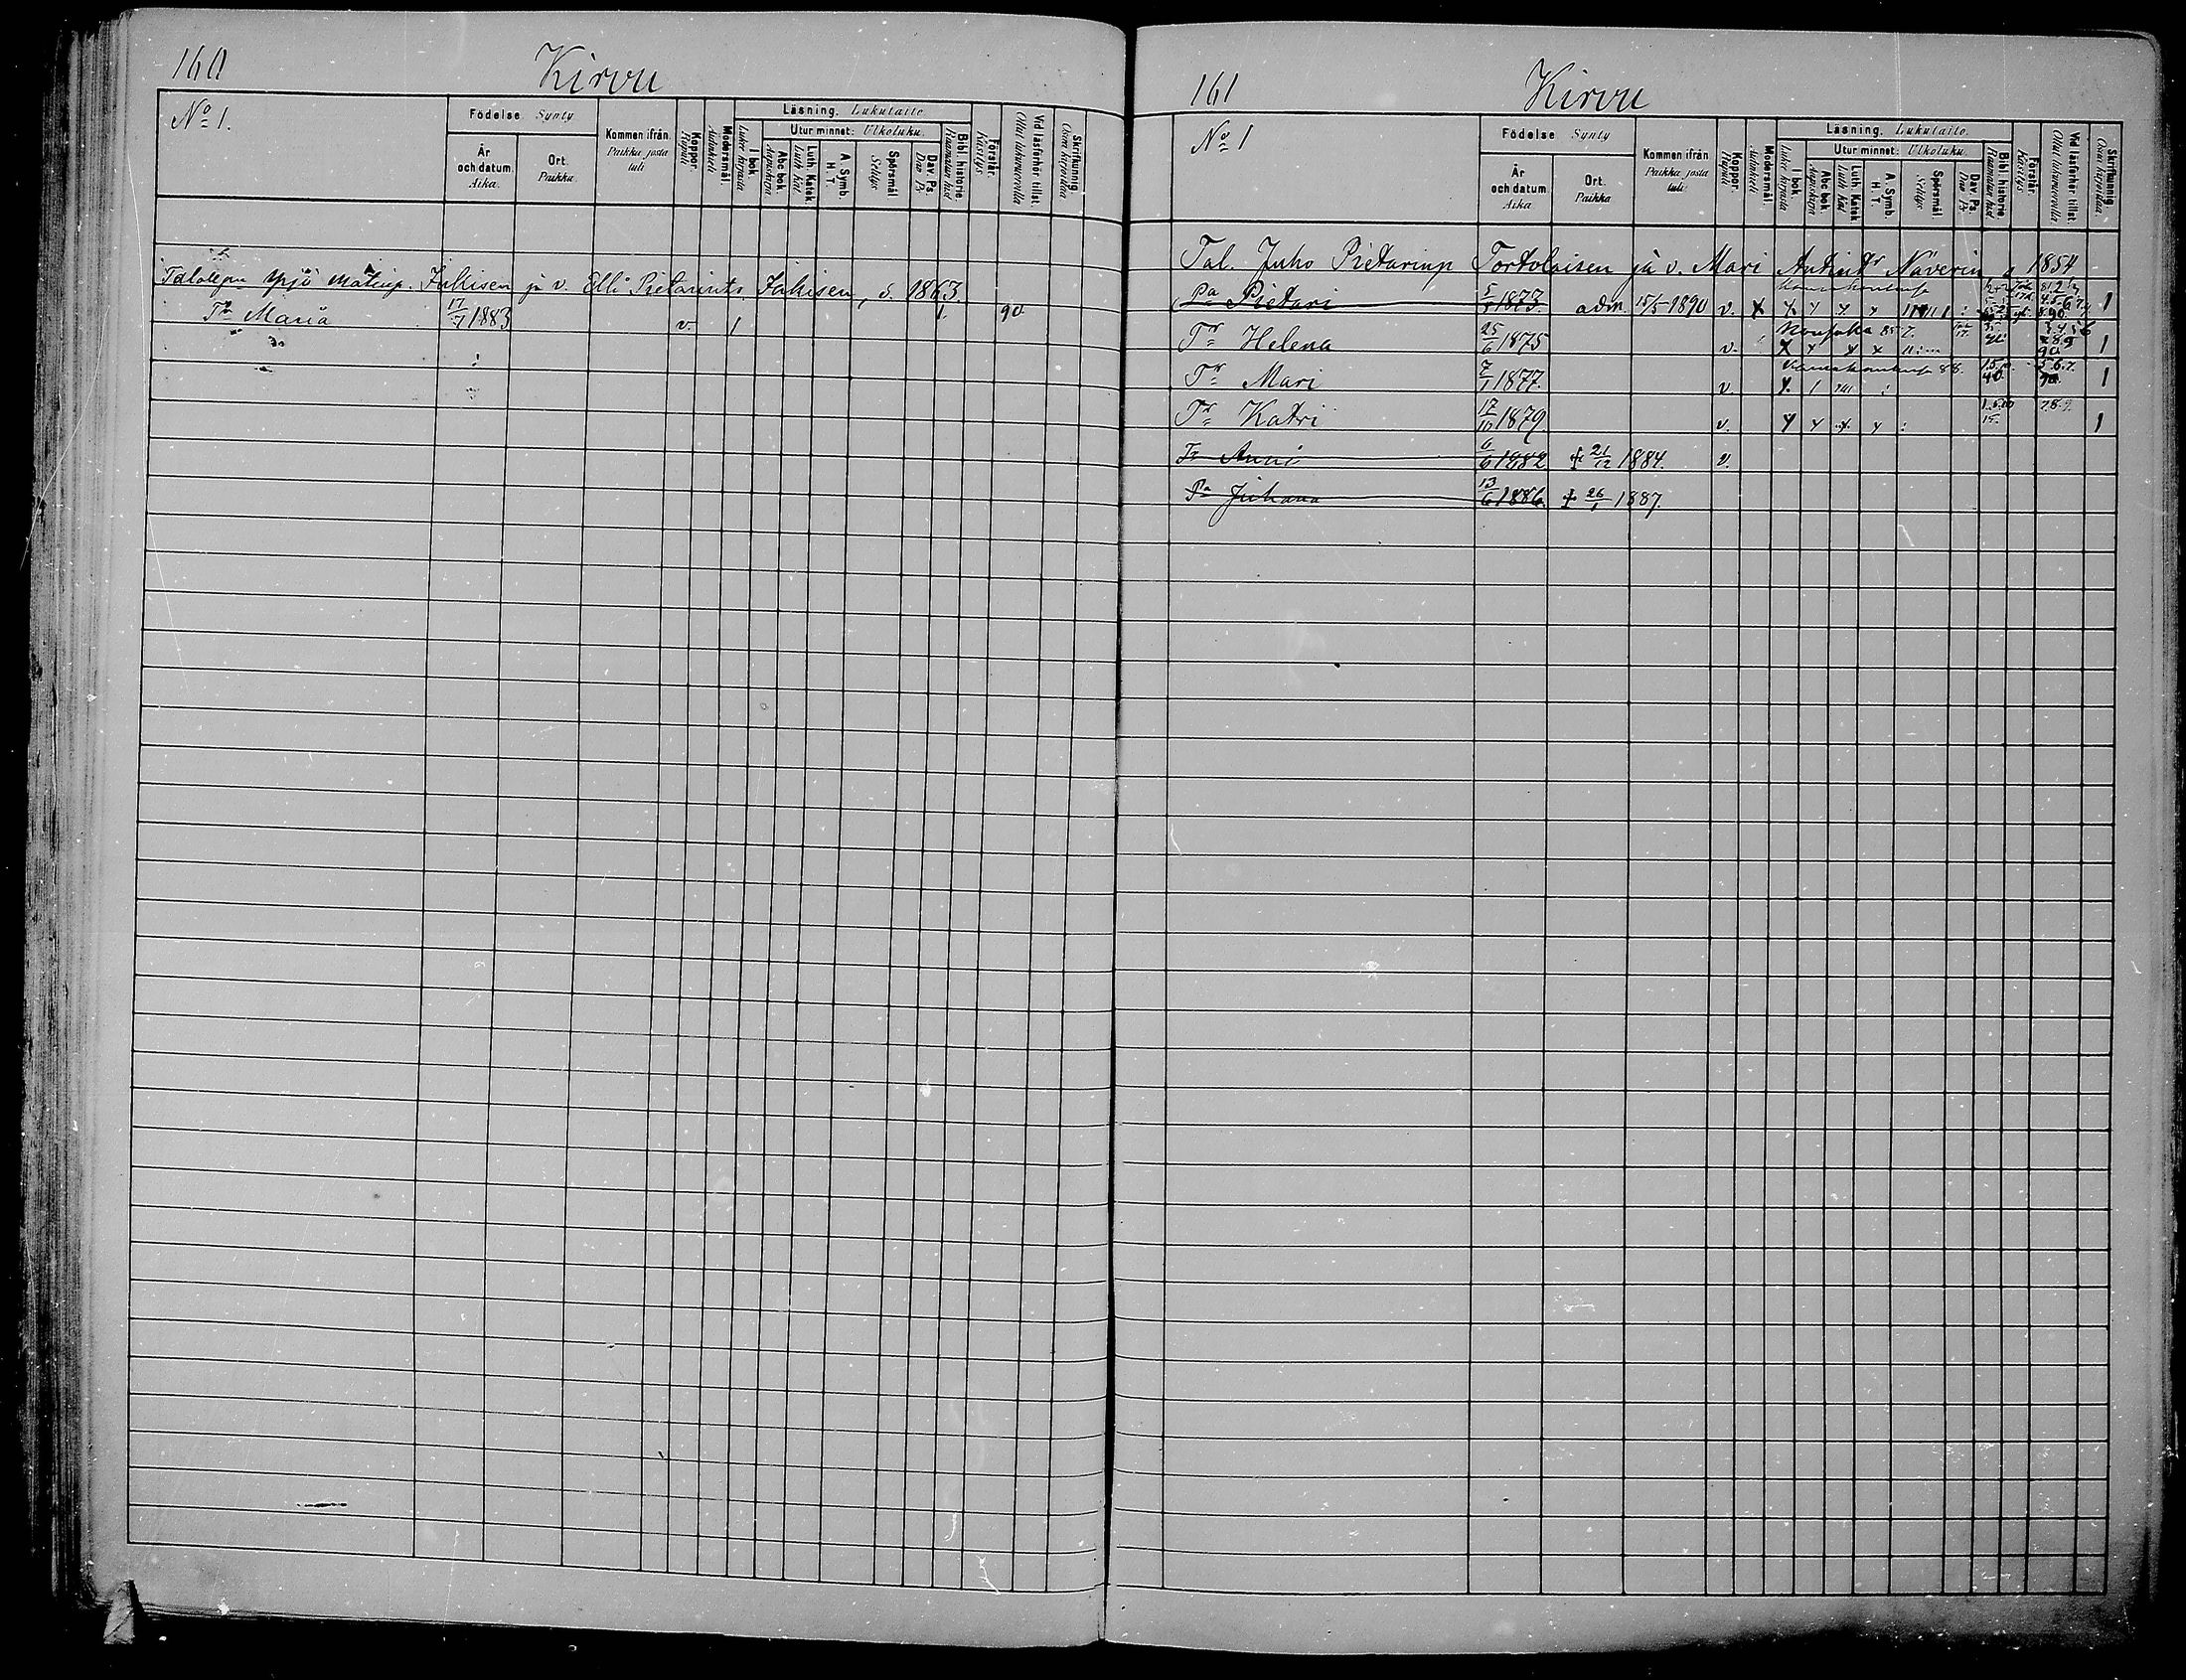 160 Kirvu
No 1.
Födelse Synty
År och datum. Aika.
Ort. Paikka.
Kommen ifrån. Paikka josta tuli
Koppor. Rupuli
Modersmål. Äidinkieli
Läsning. Lukutaito
I bok. Lukee kirjasta
Utur minnet: Ulkoluku.
Abc bok. Aapiskirja
Luth. Katek. Luth. kat.
A. Symb. H. T.
Spörsmål. Selitys
Dav. Ps. Dav. Ps.
Bibl. historie. Raamatun hist
Förstår. Käsitys
Vid läsförhör tillst. Ollut lukuvuorolla
Skrifkunnig. Osaa kirjoittaa
Yrjö Matinp. Jäkisen ja v. Elli Pietarintr. Jäkisen, s. 1863.
Tr Maria 17/7 1883 v. 1 1. 90
161 Kirvu
No 1
Födelse Synty
År och datum. Aika
Ort. Paikka
Kommen ifrån Paikka josta tuli.
Koppor. Rupuli
Modersmål. Äidinkieli
Läsning. Lukutaito.
I bok. Lukee kirjasta
Utur minnet: Ulkoluku.
Abc bok. Aapiskirja
Luth. Katek. Luth kat
A. Symb. H. T.
Spörsmål Selitys
Dav. Ps. Dav Ps
Bibl. historie Raamatun hist
Förstår. Käsitys
Vid läsförhör. tillst. Ollut lukuvuorolla
Skrifkunnig. Osaa kirjoittaa
Tal. Juho Pietarinp Tortolaisen ja v. Mari Antintr Näverin, s 1854
Pa Pietari 5/5 1873. adm. 15/5 1890 v. x x y x x 1
Tr Helena 25/6 1875 v. x y x x 90 1
Tr Mari 7/1 1877. v. 88. 5.6.7. 1
Tr Katri 17/10 1879. v. y x x x 7.8.9 1
Tr Anni 6/6 1882 † 21/12 1884. v.
Pa Juhana 13/6 1886. † 26/1 1887.